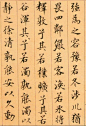 強為之容豫若冬涉川猶
若畏四鄰儼若客渙若冰將
釋敦兮其若樸曠兮其若
谷渾兮其若濁孰能濁以
靜之徐清孰能安以久動